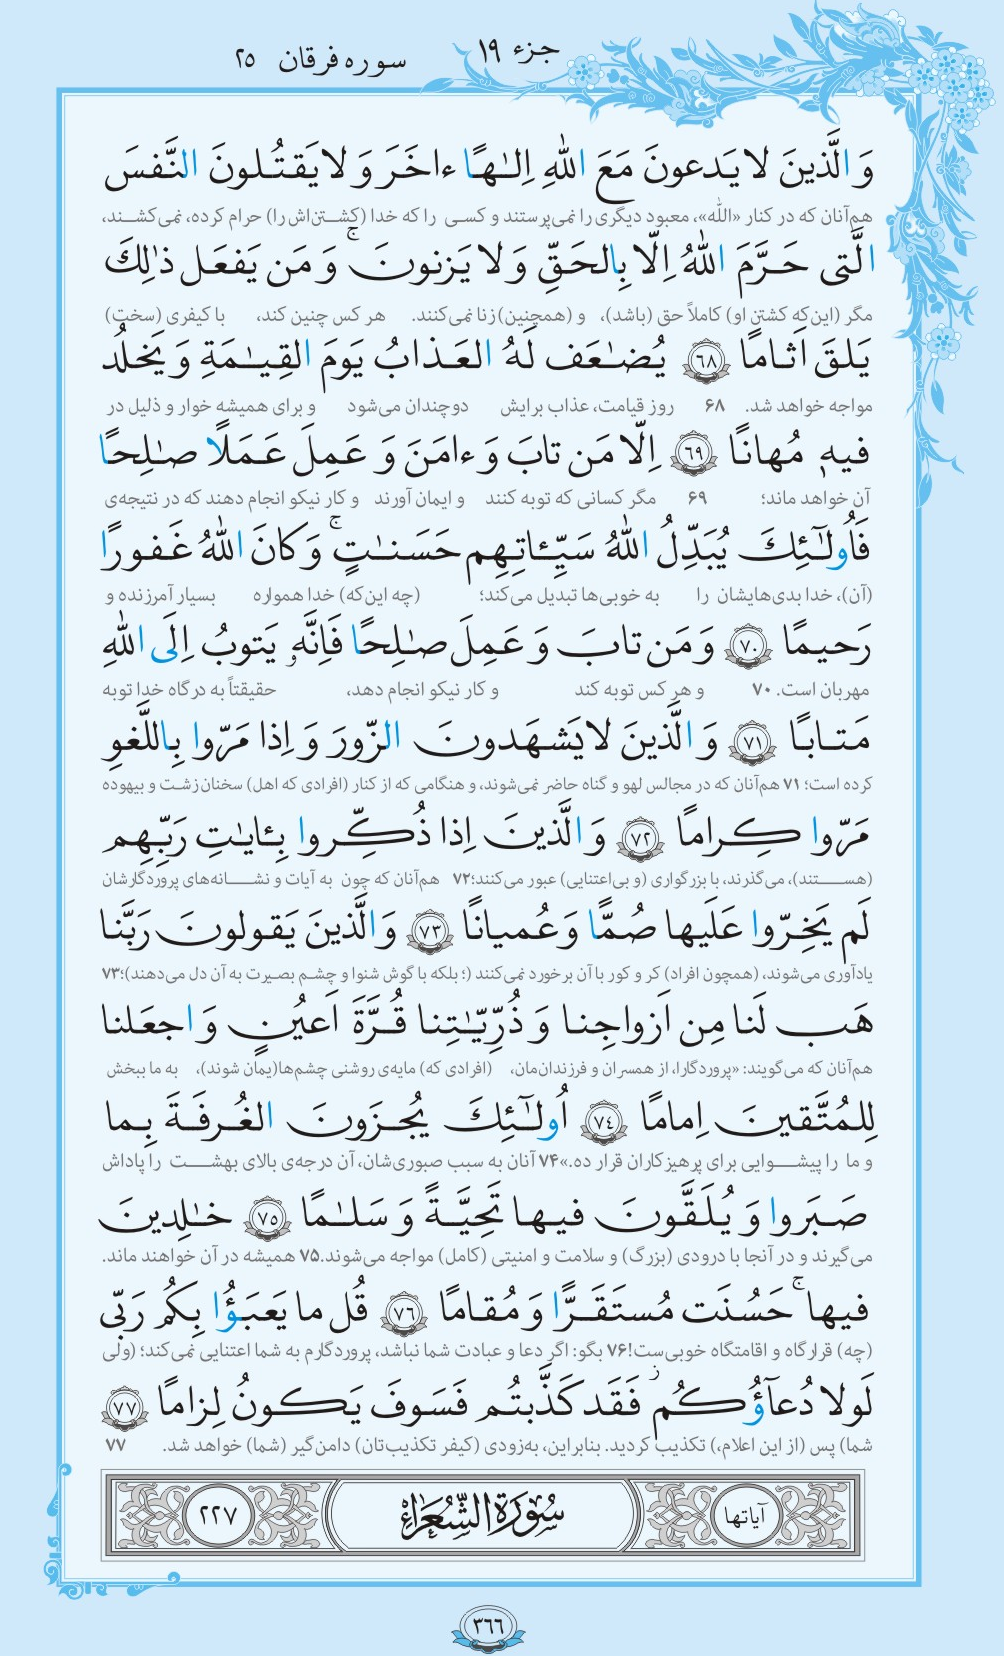 جزء ۱۹
سوره فرقان ۲۵
وَ الَّذینَ لا یَدعونَ مَعَ اللّٰهِ اِلـٰهًا ءاخَرَ وَ لا یَقتُلونَ النَّفسَ
هم‌آنان که در کنار «اللّه»، معبود دیگری را نمی‌پرستند و کسی را که خدا (کشتن‌اش را) حرام کرده، نمی‌کشند،
الَّتی حَرَّمَ اللّٰهُ اِلّا بِالحَقِّ وَ لا یَزنونَ ۚ وَ مَن یَفعَل ذٰلِكَ
مگر (این‌که کشتن او) کاملاً حق (باشد)، و (همچنین) زنا نمی‌کنند. هر کس چنین کند، با کیفری (سخت)
یَلقَ اَثامًا ﴿۶۸﴾ یُضـٰعَف لَهُ العَذابُ یَومَ القِیـٰمَةِ وَ یَخلُد
مواجه خواهد شد. ۶۸ روز قیامت، عذاب برایش دوچندان می‌شود و برای همیشه خوار و ذلیل در
فیهٖ مُهانًا ﴿۶۹﴾ اِلّا مَن تابَ وَ ءامَنَ وَ عَمِلَ عَمَلًا صـٰلِحًا
آن خواهد ماند؛ ۶۹ مگر کسانی که توبه کنند و ایمان آورند و کار نیکو انجام دهند که در نتیجه‌ی
فَاُولـٰٓئِكَ یُبَدِّلُ اللّٰهُ سَیِّـٔاتِهِم حَسَنـٰتٍ ۚ وَ کانَ اللّٰهُ غَفورًا
(آن)، خدا بدی‌هایشان را به خوبی‌ها تبدیل می‌کند؛ (چه این‌که) خدا همواره بسیار آمرزنده و
رَحیمًا ﴿۷۰﴾ وَ مَن تابَ وَ عَمِلَ صـٰلِحًا فَاِنَّهٗ یَتوبُ اِلَی اللّٰهِ
مهربان است. ۷۰ و هر کس توبه کند و کار نیکو انجام دهد، حقیقتاً به درگاه خدا توبه
مَتابًا ﴿۷۱﴾ وَ الَّذینَ لا یَشهَدونَ الزّورَ وَ اِذا مَرّوا بِاللَّغوِ
کرده است؛ ۷۱ هم‌آنان که در مجالس لهو و گناه حاضر نمی‌شوند، و هنگامی که از کنار (افرادی که اهل) سخنان زشت و بیهوده
مَرّوا کِرامًا ﴿۷۲﴾ وَ الَّذینَ اِذا ذُکِّروا بِـٔایـٰتِ رَبِّهِم
(هستند)، می‌گذرند، با بزرگواری (و بی‌اعتنایی) عبور می‌کنند؛ ۷۲ هم‌آنان که چون به آیات و نشانه‌های پروردگارشان
لَم یَخِرّوا عَلَیها صُمًّا وَ عُمیانًا ﴿۷۳﴾ وَ الَّذینَ یَقولونَ رَبَّنا
یادآوری می‌شوند، (همچون افراد) کر و کور با آن برخورد نمی‌کنند (؛ بلکه با گوش شنوا و چشم بصیرت به آن دل می‌دهند)؛ ۷۳
هَب لَنا مِن اَزواجِنا وَ ذُرِّیّـٰتِنا قُرَّةَ اَعیُنٍ وَ اجعَلنا
هم‌آنان که می‌گویند: «پروردگارا، از همسران و فرزندان‌مان، (افرادی که) مایه‌ی روشنی چشم‌ها(یمان شوند)، به ما ببخش
لِلمُتَّقینَ اِمامًا ﴿۷۴﴾ اُولـٰٓئِكَ یُجزَونَ الغُرفَةَ بِما
و ما را پیشوایی برای پرهیزکاران قرار ده.» ۷۴ آنان به سبب صبوری‌شان، آن درجه‌ی بالای بهشت را پاداش
صَبَروا وَ یُلَقَّونَ فیها تَحِیَّةً وَ سَلـٰمًا ﴿۷۵﴾ خـٰلِدینَ
می‌گیرند و در آنجا با درودی (بزرگ) و سلامت و امنیتی (کامل) مواجه می‌شوند. ۷۵ همیشه در آن خواهند ماند.
فیها ۚ حَسُنَت مُستَقَرًّا وَ مُقامًا ﴿۷۶﴾ قُل ما یَعبَؤُا بِکُم رَبّی
(چه) قرارگاه و اقامتگاه خوبی‌ست! ۷۶ بگو: اگر دعا و عبادت شما نباشد، پروردگارم به شما اعتنایی نمی‌کند؛ (ولی
لَولا دُعاۤؤُکُم ۖ فَقَد کَذَّبتُم فَسَوفَ یَکونُ لِزامًا ﴿۷۷﴾
شما) پس (از این اعلام،) تکذیب کردید. بنابراین، به‌زودی (کیفر تکذیب‌تان) دامن‌گیر (شما) خواهد شد. ۷۷
آیاتها
سُورَةُ الشُّعَرَاءِ
۲۲۷
۳۶۶